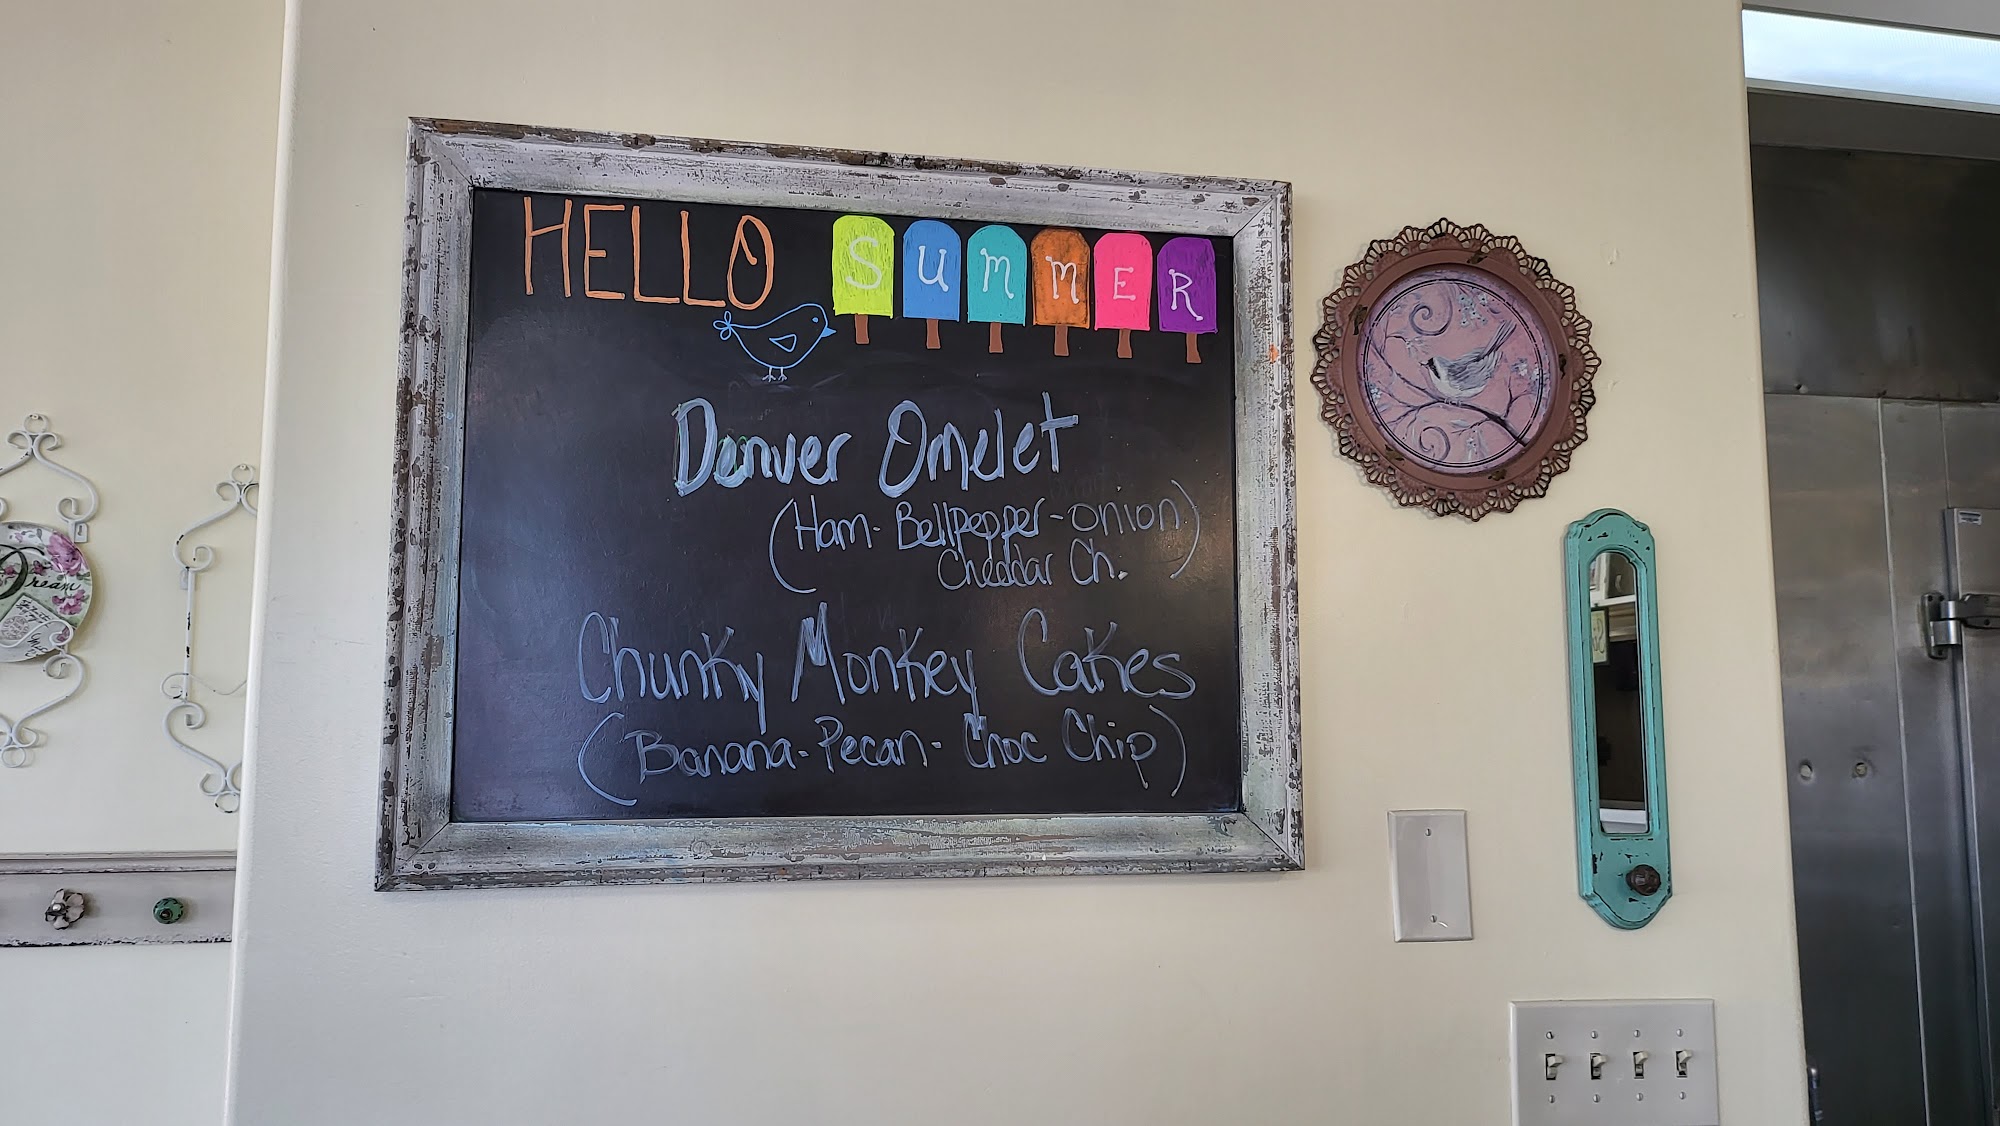 HELLO SUMMER
Denver Omelet
(Ham - Bellpepper - onion
Cheddar Ch.)
Chunky Monkey Cakes
(Banana - Pecan - Choc Chip)
Dream